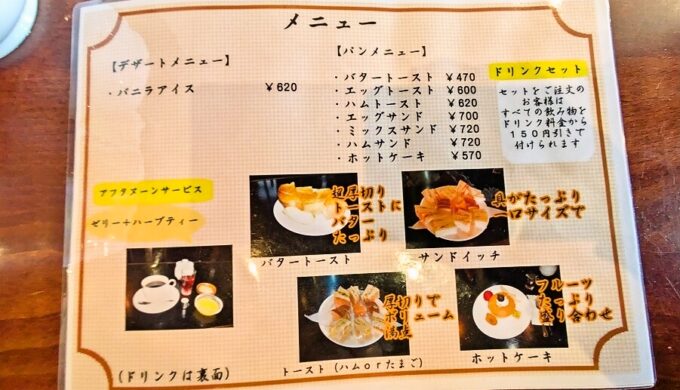 メニュー
【デザートメニュー】
・バニラアイス ￥620
【パンメニュー】
・バタートースト ￥470
・エッグトースト ￥600
・ハムトースト ￥620
・エッグサンド ￥700
・ミックスサンド ￥720
・ハムサンド ￥720
・ホットケーキ ￥570
ドリンクセット
セットをご注文の
お客様は
すべての飲み物を
ドリンク料金から
150円引きで
付けられます
アフタヌーンサービス
ゼリー＋ハーブティー
超厚切り
トーストに
バター
たっぷり
バタートースト
具がたっぷり
一口サイズで
サンドイッチ
厚切りで
ボリューム
満点
トースト(ハムorたまご)
フルーツ
たっぷり
盛り合わせ
ホットケーキ
(ドリンクは裏面)